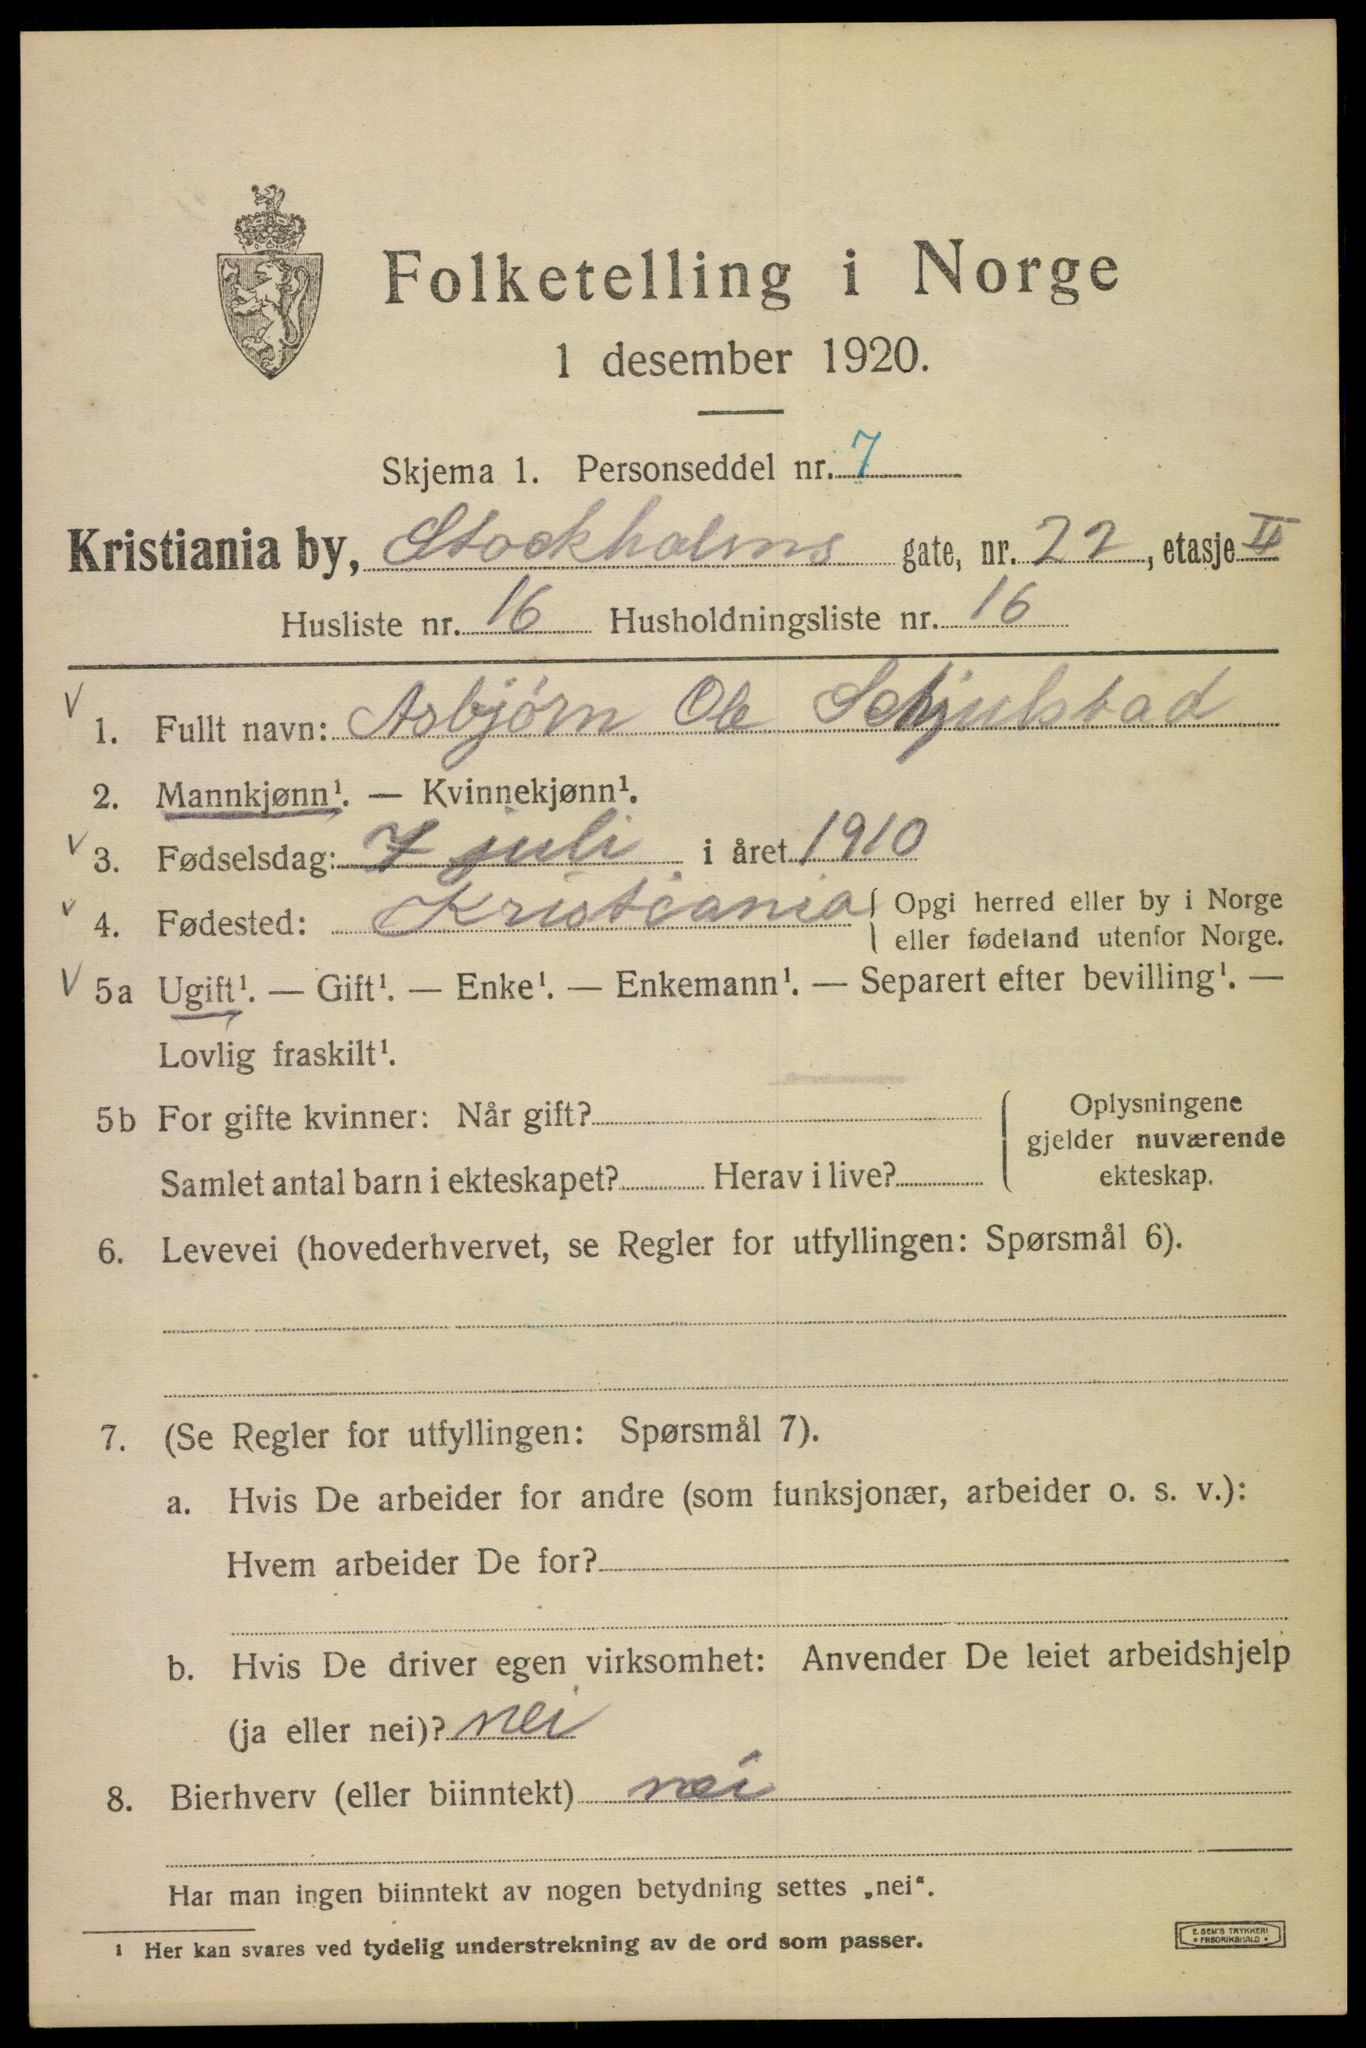 Folketelling i Norge
1 desember 1920.
Skjema 1. Personseddel nr. 7
Kristiania by, Stockholms gate, nr. 22, etasje II
Husliste nr. 16 Husholdningsliste nr. 16
1. Fullt navn: Asbjørn Ole Schjulstad
2. Mannkjønn¹. — Kvinnekjønn¹.
3. Fødselsdag: 7 juli i året 1910
4. Fødested: Kristiania { Opgi herred eller by i Norge
eller fødeland utenfor Norge.
5a Ugift¹. — Gift¹. — Enke¹. — Enkemann¹. — Separert efter bevilling¹. —
Lovlig fraskilt¹.
5b For gifte kvinner: Når gift?
Samlet antal barn i ekteskapet? Herav i live?
Oplysningene
gjelder nuværende
ekteskap.
6. Levevei (hovederhvervet, se Regler for utfyllingen: Spørsmål 6).
7. (Se Regler for utfyllingen: Spørsmål 7).
a. Hvis De arbeider for andre (som funksjonær, arbeider o. s. v.):
Hvem arbeider De for?
b. Hvis De driver egen virksomhet: Anvender De leiet arbeidshjelp
(ja eller nei)? nei
8. Bierhverv (eller biinntekt) nei
Har man ingen biinntekt av nogen betydning settes „nei“.
¹ Her kan svares ved tydelig understrekning av de ord som passer.
E. SEM'S TRYKKERI
* FREDRIKSHALD *